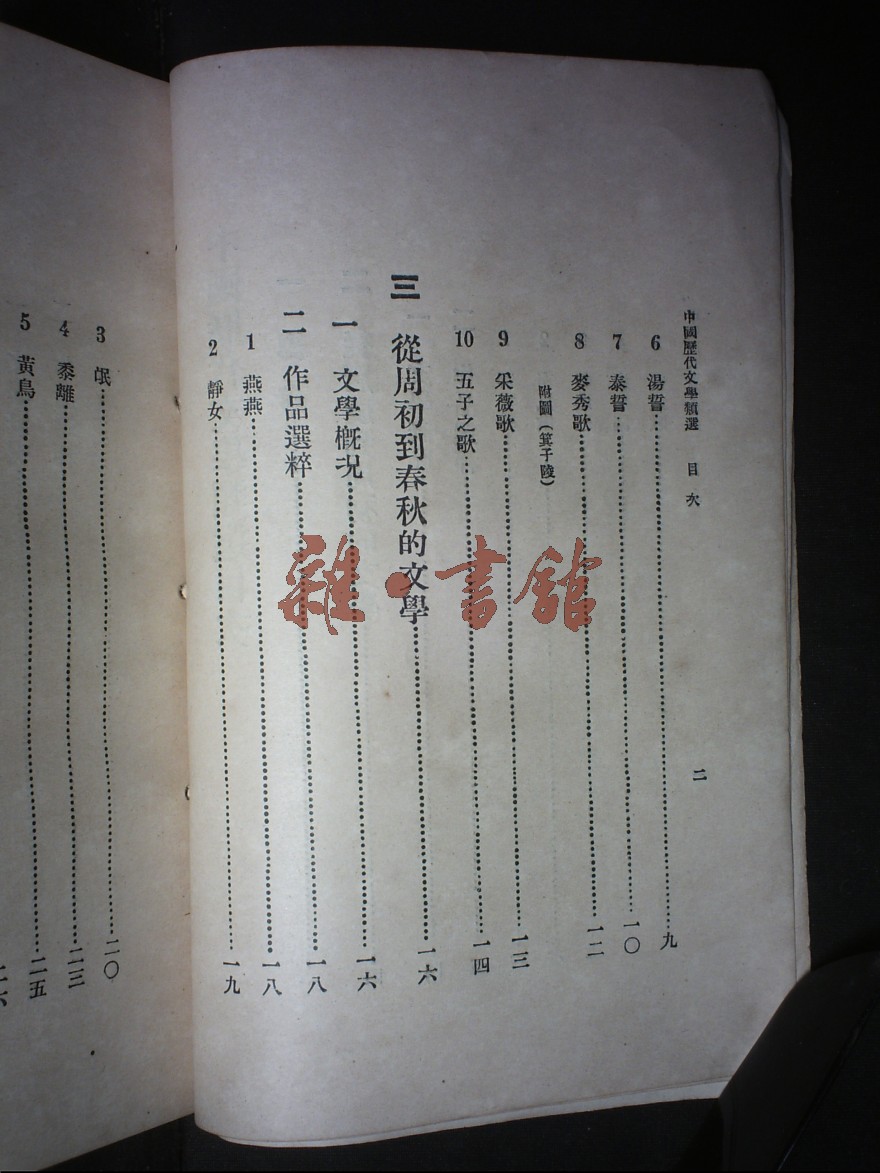 中國歷代文學類選 目次 二
6 湯誓 九
7 泰誓 一〇
8 麥秀歌 一二
附圖(箕子陵)
9 采薇歌 一三
10 五子之歌 一四
三 從周初到春秋的文學 一六
一 文學概況 一六
二 作品選粹 一八
1 燕燕 一八
2 靜女 一九
3 氓 二〇
4 黍離 二三
5 黃鳥 二五
雜·書館